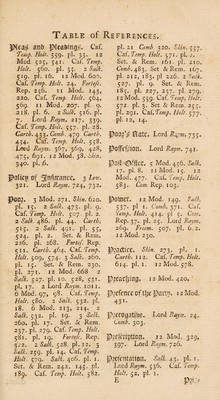 TABLE OF REFERENCES.
Pleas and Pleadings. Cas.
Temp. Holt. 559. pl. 33. 12
Mod 525, 541. Cas. Temp.
Holt. 560. pl. 35. 2 Salk.
519. pl. 16. 12 Mod. 600.
Cas. Temp. Holt. 24. Farest.
Rep. 256. 11 Mod. 143,
220. Cas. Temp. Holt. 564,
569. 11 Mod. 207. pl. 9.
218. pl. 6. 2 Salk. 516. pl.
7. Lord Raym. 217, 339.
Cas. Temp. Holt. 557. pl. 28.
Carth. 433. Comb. 479. Carth.
434. Cas. Temp. Holt. 558.
Lord Raym. 367, 969, 428,
475, 691. 12 Mod. 38. Skin.
340. pl. 6.
Policy of Insurance. 3 Lev.
321. Lord Raym. 724, 732.
Poor. 5 Mod. 271. Skin. 620.
pl. 15. 2 Salk. 473. pl. 9.
Cas. Temp. Holt. 507. pl. 2.
2 Salk. 486. pl. 44. Carth.
515. 2 Salk. 491. pl. 55,
524. pl. 2. Set. & Rem.
226. pl. 268. Foresf. Rep.
151. Carth. 464. Cas. Temp.
Holt. 509, 574. 2 Salk. 260.
pl. 15. Set. & Rem. 230.
pl. 271. 12 Mod. 668. 2
Salk. 527. pl. 10. 528. 531.
pl. 17. 2 Lord Raym. 1011.
6 Mod. 97, 98. Cas. Temp.
Holt. 580. 2 Salk. 532. pl.
18. 6 Mod. 213, 214. 2
Salk. 533. pl. 19. 2 Salk.
260. pl. 17. Set. & Rem.
237. pl. 279. Cas. Temp. Holt.
581. pl. 19. Foresf. Rep.
52. 2 Salk. 528. pl. 12. 3
Salk. 259. pl. 14. Cas. Temp.
Holt. 579. Salk. 256. pl. 1.
Set. & Rem. 242, 145. pl.
189. Cas. Temp. Holt. 582.
pl. 21. Comb. 320. Skin. 557.
Cas. Temp. Holt. 571. pl. 2.
Set. & Rem. 161. pl. 210.
Comb. 483. Set. & Rem. 167,
pl. 212, 183, pl. 226. 2 Salk.
527. pl. 9. Set. & Rem.
185. pl. 227, 257. pl. 279.
12 Mod. 559. Cas. Temp. Holt.
572. pl. 3. Set. & Rem. 245.
pl. 291. Cas. Temp. Holt. 577.
pl. 12, 14.
Poor's Rate. Lord Raym. 735.
Possession. Lord Raym. 741.
Post-Office. 5 Mod. 456. Salk.
17. pl. 8. 11 Mod. 15. 12
Mod. 477. Cas. Temp. Holt.
583. Com Rep. 103.
Power. 12 Mod. 149. Salk.
537. pl 1. Comb. 371. Cas.
Temp. Holt. 414. pl. 15. Com.
Rep. 37. pl. 25. Lord Raym.
269. Frem. 507. pl. 6. 2.
12 Mod. 230.
Practice. Skin. 273. pl. 1.
Carth. 112. Cas. Temp. Holt.
614. pl. 1. 12 Mod. 578.
Preaching. 12 Mod. 420.
Presence of the Party. 12 Mod.
431.
Prerogative. Lord Raym. 24.
Comb. 303.
Prescription. 12 Mod. 329,
397. Lord Raym. 726.
Presentation. Salk. 43. pl. 1.
Lord Raym. 536. Cas. Temp.
Holt. 52. pl. 1.
E